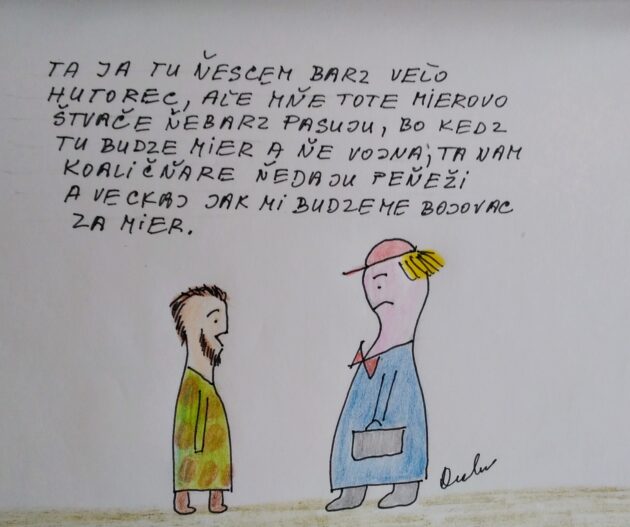 TA JA TU ŇESCEM BARZ VEĽO
HUTOREC, AĽE MŇE TOTE MIEROVO
ŠTVAČE ŇEBARZ PASUJU, BO KEDZ
TU BUDZE MIER A ŇE VOJNA, TA NAM
KOALIČŇARE ŇEDAJU PEŇEŽI
A VECKAJ JAK MI BUDZEME BOJOVAC
ZA MIER.